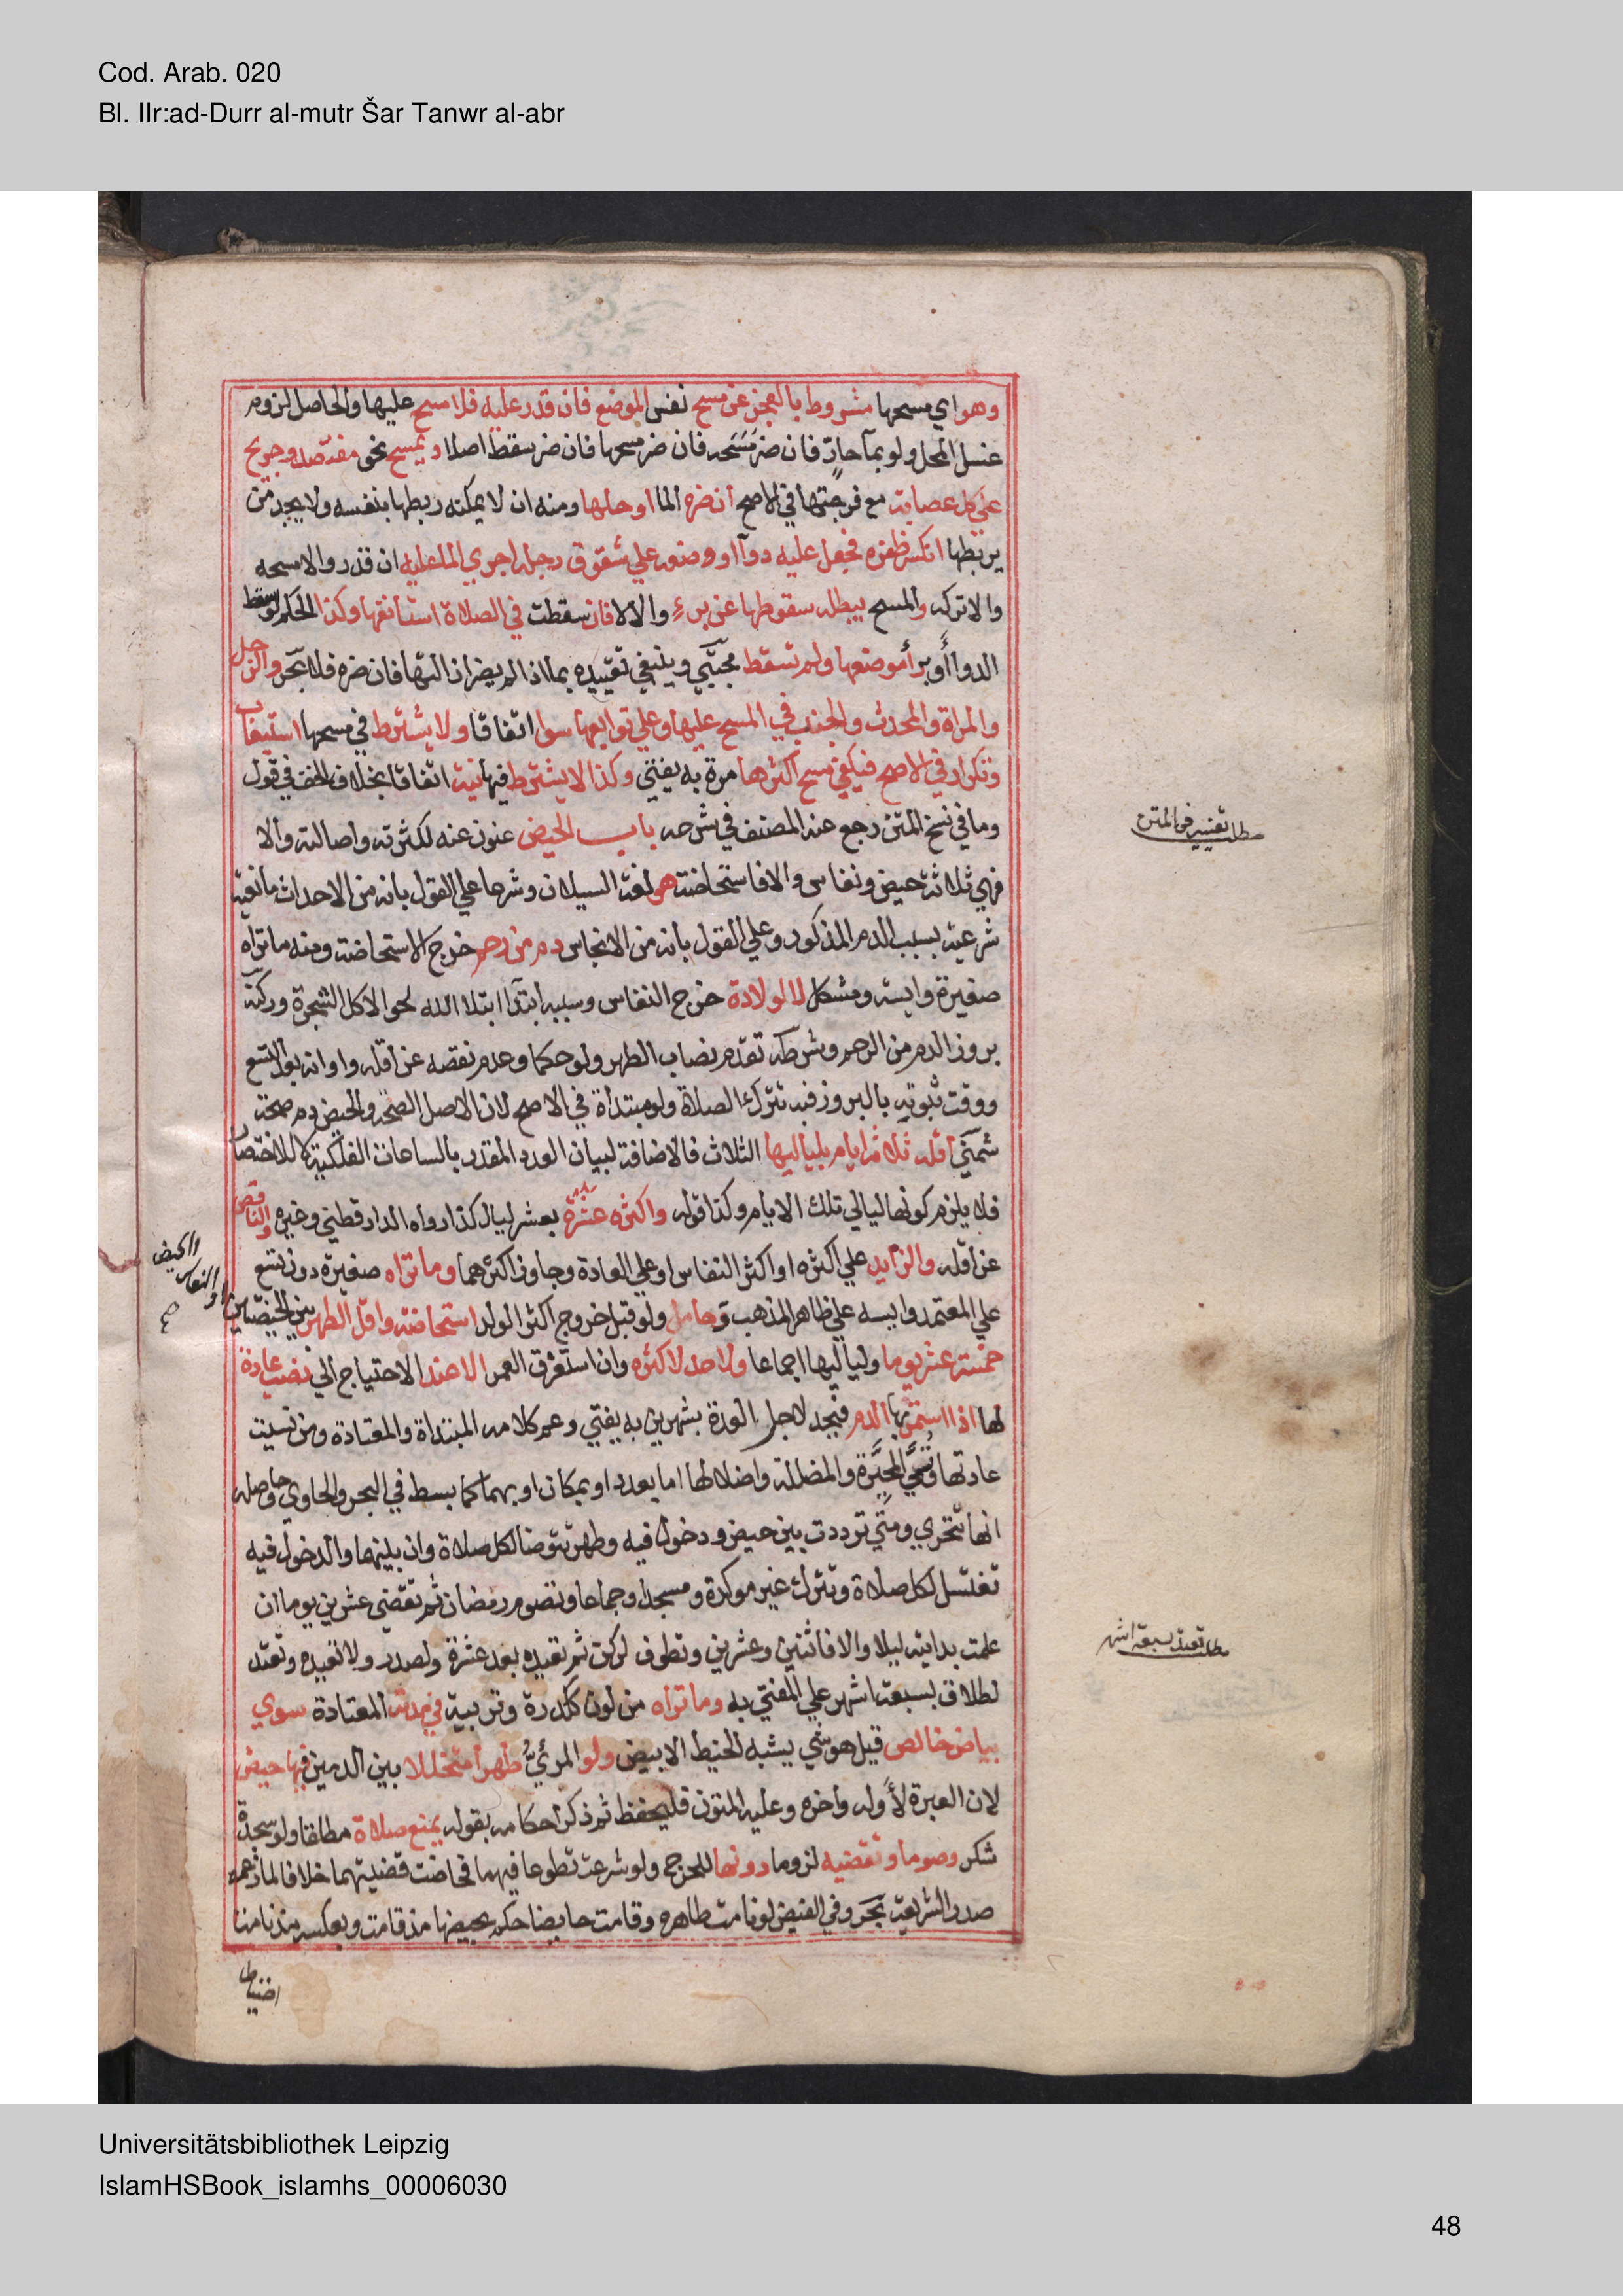 Cod. Arab. 020
Bl. IIr:ad-Durr al-mutr Šar Tanwr al-abr
وهو اي مسحها مشروط بالعجز عن مسح نفس الموضع فان قدر عليه فلا مسح عليها والحاصل لزوم
غسل المحل ولو بمآ حارٍّ فان ضر مَسَحَه فان ضر مسحها فان ضر سقط اصلا ويمسح نحو مفتصد وجريح
علي كل عصابة مع فرجتها في الاصح ان ضره الما او حلها ومنه ان لا يمكنه ربطها بنفسه ولا يجد من
يربطها انكسر ظفره فجعل عليه دوآ او وضعه علي شقوق رجله اجري الما عليه ان قدر والا مسحه
والا تركه والمسح يبطله سقوطها عن برء والا لا فان سقطت في الصلاة استأنفها وكذا الحكم لو سقط
الدوا أو برأ موضعها ولم تسقط مجتبي وينبغي تقييده بما اذا لم يضر ازالتها فان ضره فلا بحر والرجل
والمراة والمحدث والجنب في المسح عليها وعلي توابعها سوا اتفاقا ولا يشترط في مسحها استيعاب
وتكرار في الاصح فيكفي مسح اكثرها مرة به يفتي وكذا لا يشترط فيها نية اتفاقا بخلاف الخف في قول
وما في نسخ المتن رجع عنه المصنف في شرحه باب الحيض عنون عنه لكثرته واصالته والا
فهي ثلاثة حيض ونفاس والا فاستحاضة هو لغة السيلان وشرعا علي القول بانه من الاحداث مانعية
شرعية بسبب الدم المذكور وعلي القول بانه من الانجاس دم من رحم خرج الاستحاضة ومنه ما تراه
صغيرة وايسة ومشكل لا لولادة خرج النفاس وسببه ابتدآ ابتلا الله لحوا لاكل الشجرة وركنه
بروز الدم من الرحم وشرطه تقدم نصاب الطهر ولو حكما وعدم نقصه عن اقله واوانه بعد التسع
ووقت ثبوته بالبروز فبه تترك الصلاة ولو مبتدأة في الاصح لان الاصل الصحة والحيض دم صحة
شمني اقله ثلاثة ايام بلياليها الثلاث فالاضافة لبيان العدد المقدر بالساعات الفلكية لا للاختصا
فلا يلزم كونها ليالي تلك الايام وكذا قوله واكثره عَشَرة بعشر ليال كذا رواه الدارقطني وغيره والناقص
عن اقله والزايد علي اكثره او اكثر النفاس او علي العادة وجاوز اكثرهما وما تراه صغيرة دون تسع
علي المعتمد وايسه علي ظاهر المذهب وحامل ولو قبل خروج اكثر الولد استحاضة واقل الطهر بين الحيضتين
خمسة عشر يوما ولياليها اجماعا ولا حد لاكثره وان استغرق العمر الا عند الاحتياج الي نصب عادة
لها اذا استمر بها الدم فيحد لاجل العدة بشهرين به يفتي وعم كلامه المبتداة والمعتادة ومن نسيت
عادتها وتُسَمَّي المُحَيِّرَة والمضللة واضلالها اما بعدد او بمكان او بهما كما بسط في البحر والحاوي وحاصله
انها تتحري ومتي ترددت بين حيض ودخول فيه وطهر تتوضا لكل صلاة وان بينهما والدخول فيه
تغتسل لكل صلاة وتترك غير موكدة ومسجدا وجماعا وتصوم رمضان ثم تقضي عشرين يوما ان
علمت بدايته ليلا والا فاثنين وعشرين وتطوف لركن ثم تعيده بعد عشرة ولصدر ولا تعيده وتعتد
لطلاق بسبعة اشهر علي المفتي به وما تراه من لون ككدرة وتربية في مدته المعتادة سوي
بياض خالص قيل هو شي يشبه الخيط الابيض ولو المرئيُّ طهرا متخللا بين الدمين فيها حيض
لان العبرة لأوله واخره وعليه المتون فليحفظ ثم ذكر احكامه بقوله يمنع صلاة مطلقا ولو سجدة
شكر وصوما وتقضيه لزوما دونها للحرج ولو شرعت تطوعا فيهما فحاضت قضيتهما خلافا لما زعمه
صدر الشريعة بحر وفي الفيض لو نامت طاهره وقامت حايضا حكم بحيضها مذ قامت وبعكسه مذ نامت
احتياطا
مطلب تفسير في المتن
مطلب تعتد بسبعة اشهر
او الحيض
او النفاس
صح
Universitätsbibliothek Leipzig
IslamHSBook_islamhs_00006030
48